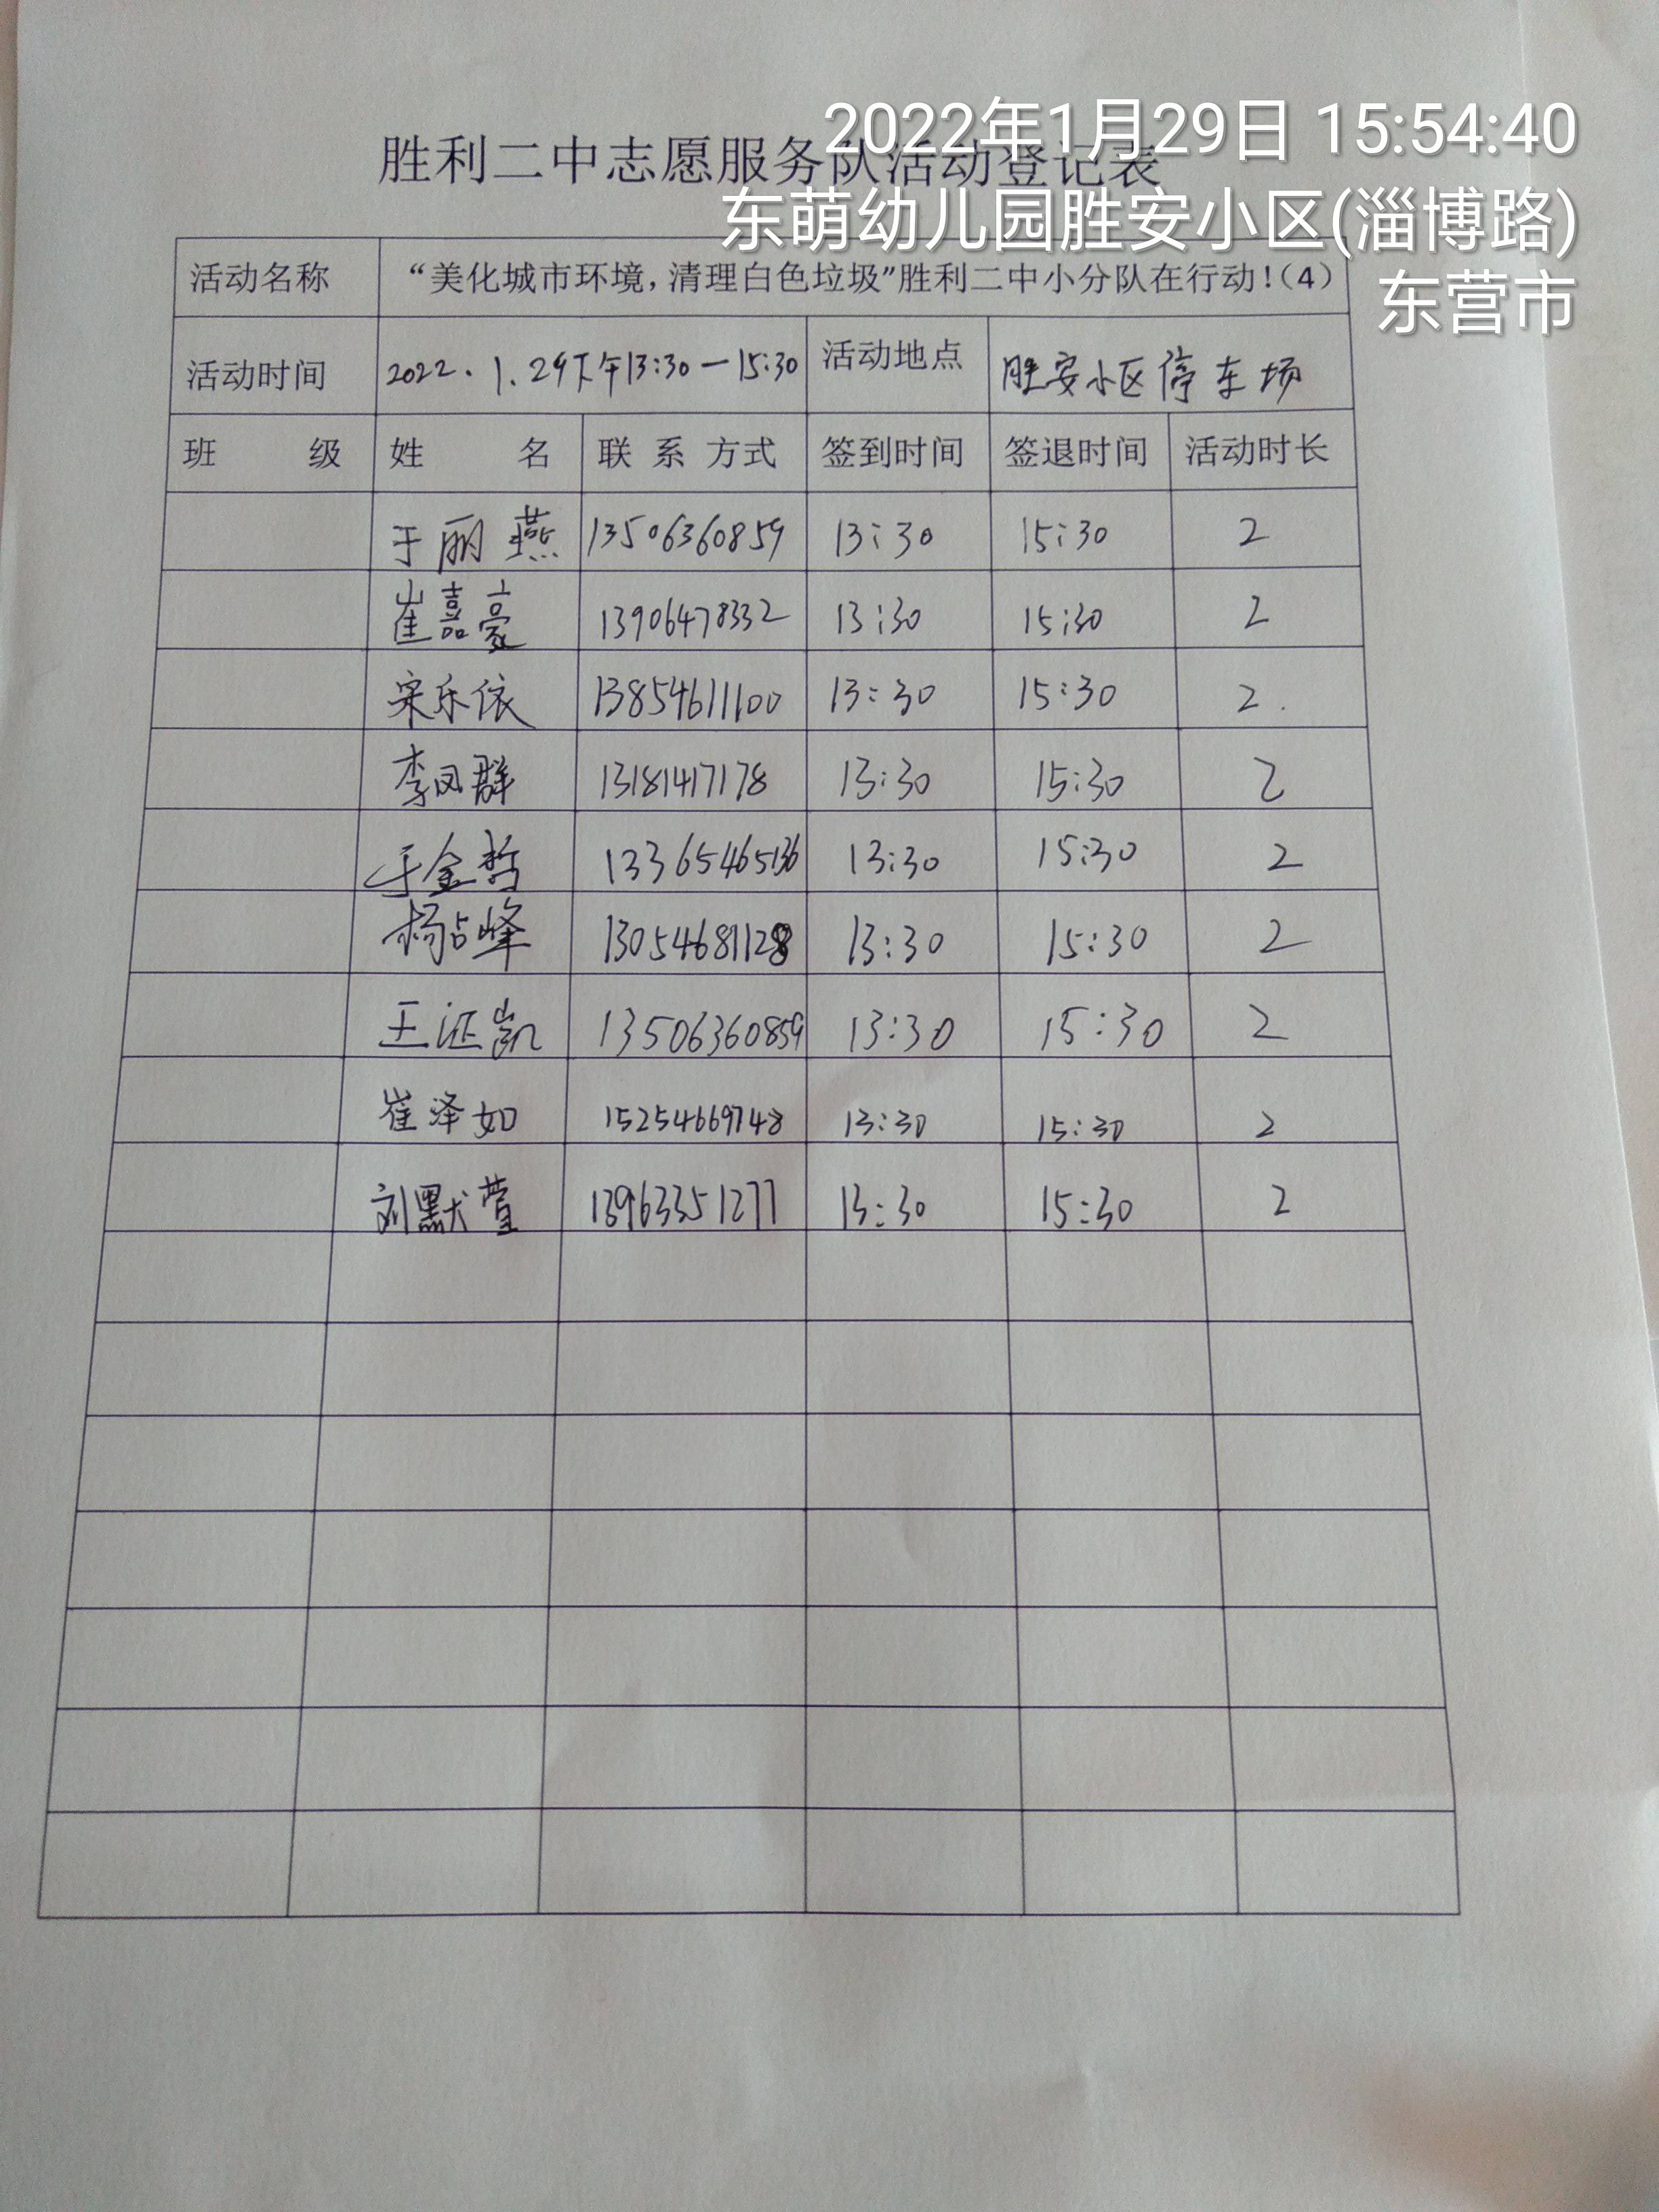 2022年1月29日 15:54:40
胜利二中志愿服务队活动登记表
东萌幼儿园胜安小区(淄博路)
东营市
活动名称 “美化城市环境，清理白色垃圾”胜利二中小分队在行动！（4）
活动时间 2022.1.29下午13:30—15:30 活动地点 胜安小区停车场
班 级 姓 名 联系方式 签到时间 签退时间 活动时长
于丽燕 13506360859 13:30 15:30 2
崔嘉豪 13906478332 13:30 15:30 2
宋乐依 13854611100 13:30 15:30 2.
李凤群 13181417178 13:30 15:30 2
于金哲 13365465136 13:30 15:30 2
杨占峰 13054681128 13:30 15:30 2
王证凯 13506360859 13:30 15:30 2
崔泽如 15254669748 13:30 15:30 2
刘默萱 13963351277 13:30 15:30 2